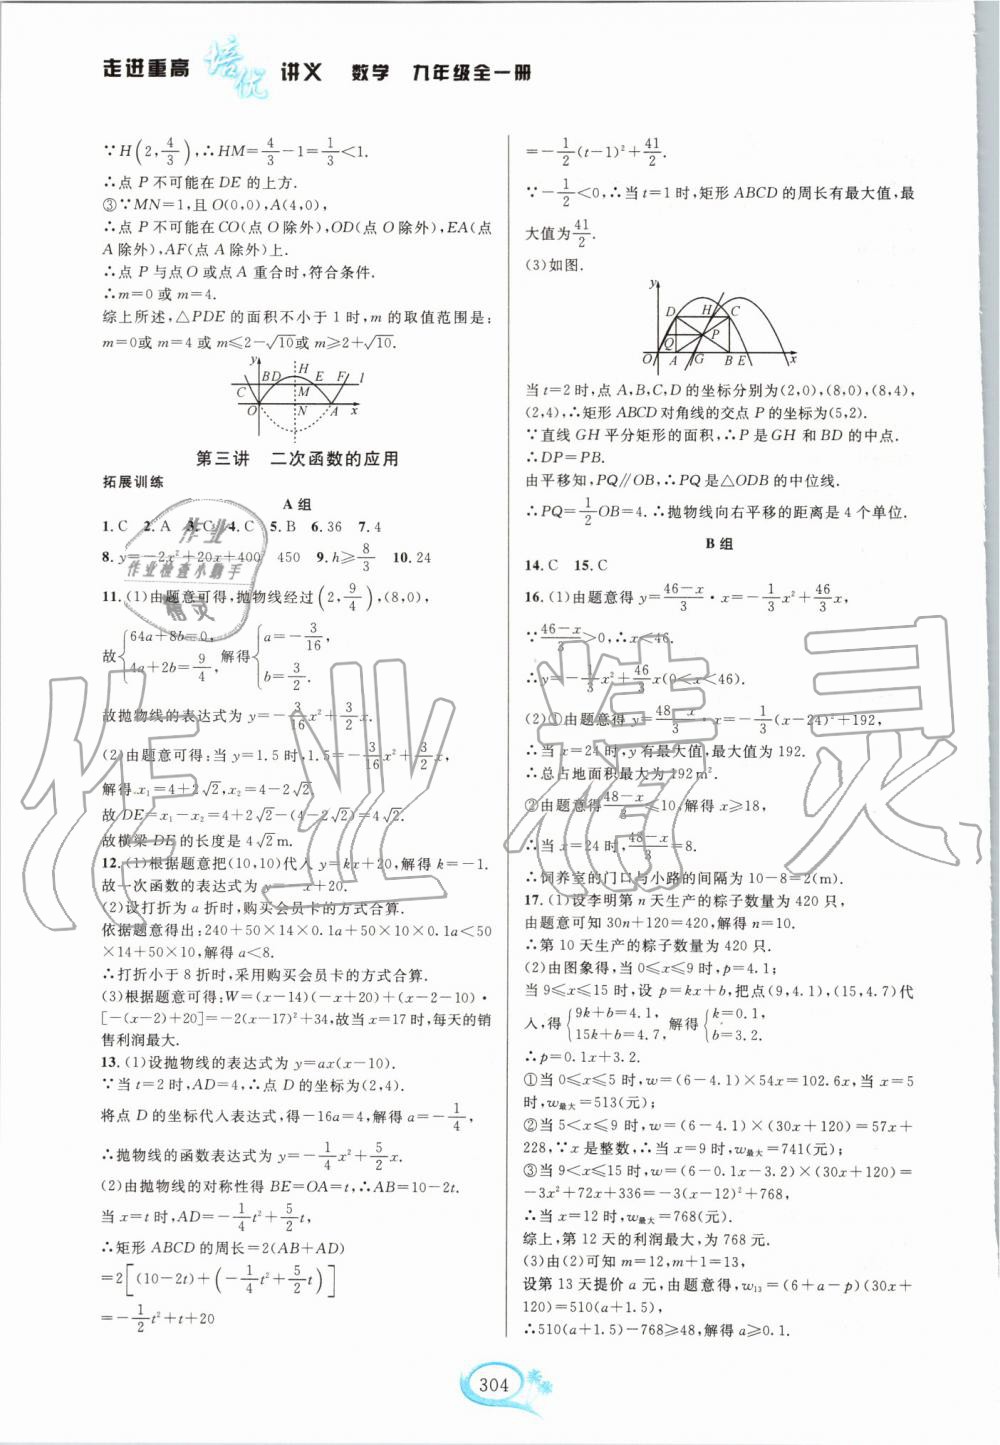 走进重高 培优 讲义 数学 九年级全一册
∵H(2,4/3),∴HM=4/3-1=1/3<1.
∴点 P 不可能在 DE 的上方.
③∵MN=1,且 O(0,0),A(4,0),
∴点 P 不可能在 CO(点 O 除外),OD(点 O 除外),EA(点
A 除外),AF(点 A 除外)上.
∴点 P 与点 O 或点 A 重合时,符合条件.
∴m=0 或 m=4.
综上所述,△PDE 的面积不小于 1 时,m 的取值范围是:
m=0或 m=4 或 m≤2-√10或 m≥2+√10.
y
B D H E F l
C M
O N A x
第三讲 二次函数的应用
拓展训练
A 组
1. C 2. A 3. C 4. C 5. B 6. 36 7. 4
8. y=-2x²+20x+400 450 9. h≥8/3 10. 24
11. (1)由题意可得,抛物线经过(2,9/4),(8,0),
故{64a+8b=0, 4a+2b=9/4, 解得{a=-3/16, b=3/2.
故抛物线的表达式为 y=-3/16x²+3/2x.
(2)由题意可得:当 y=1.5 时,1.5=-3/16x²+3/2x,
解得 x₁=4+2√2,x₂=4-2√2.
故 DE=x₁-x₂=4+2√2-(4-2√2)=4√2.
故横梁 DE 的长度是 4√2m.
12. (1)根据题意把(10,10)代入 y=kx+20,解得 k=-1.
故一次函数的表达式为 y=-x+20.
(2)设打折为 a 折时,购买会员卡的方式合算.
依据题意得出:240+50×14×0.1a+50×10×0.1a<50
×14+50×10,解得 a<8.
∴打折小于 8 折时,采用购买会员卡的方式合算.
(3)根据题意可得:W=(x-14)(-x+20)+(x-2-10)·
[-(x-2)+20]=-2(x-17)²+34,故当 x=17 时,每天的销
售利润最大.
13. (1)设抛物线的表达式为 y=ax(x-10).
∵当 t=2 时,AD=4,∴点 D 的坐标为(2,4).
将点 D 的坐标代入表达式,得-16a=4,解得 a=-1/4,
∴抛物线的函数表达式为 y=-1/4x²+5/2x.
(2)由抛物线的对称性得 BE=OA=t,∴AB=10-2t.
当 x=t 时,AD=-1/4t²+5/2t,
∴矩形 ABCD 的周长=2(AB+AD)
=2[(10-2t)+(-1/4t²+5/2t)]
=-1/2t²+t+20
=-1/2(t-1)²+41/2.
∵-1/2<0,∴当 t=1 时,矩形 ABCD 的周长有最大值,最
大值为41/2.
(3)如图.
y
D H C
Q P
O A G B E x
当 t=2 时,点 A,B,C,D 的坐标分别为(2,0),(8,0),(8,4),
(2,4),∴矩形 ABCD 对角线的交点 P 的坐标为(5,2).
∵直线 GH 平分矩形的面积,∴P 是 GH 和 BD 的中点.
∴DP=PB.
由平移知,PQ∥OB,∴PQ 是△ODB 的中位线.
∴PQ=1/2OB=4.∴抛物线向右平移的距离是 4 个单位.
B 组
14. C 15. C
16. (1)由题意得 y=46-x/3·x=-1/3x²+46/3x,
∵46-x/3>0,∴x<46.
∴y=-1/3x²+46/3x(0<x<46).
(2)①由题意得 y=48-x/3·x=-1/3(x-24)²+192,
∴当 x=24 时,y 有最大值,最大值为 192.
∴总占地面积最大为 192m².
②由题意得48-x/3≤10,解得 x≥18,
∴当 x=24 时,48-x/3=8.
∴饲养室的门口与小路的间隔为 10-8=2(m).
17. (1)设李明第 n 天生产的粽子数量为 420 只,
由题意可知 30n+120=420,解得 n=10.
∴第 10 天生产的粽子数量为 420 只.
(2)由图象得,当 0≤x≤9 时,p=4.1;
当 9≤x≤15 时,设 p=kx+b,把点(9,4.1),(15,4.7)代
入,得{9k+b=4.1, 15k+b=4.7, 解得{k=0.1, b=3.2.
∴p=0.1x+3.2.
①当 0≤x≤5 时,w=(6-4.1)×54x=102.6x,当 x=5
时,w最大=513(元);
②当 5<x≤9 时,w=(6-4.1)×(30x+120)=57x+
228,∵x 是整数,∴当 x=9 时,w最大=741(元);
③当 9<x≤15 时,w=(6-0.1x-3.2)×(30x+120)=
-3x²+72x+336=-3(x-12)²+768,
∴当 x=12 时,w最大=768(元).
综上,第 12 天的利润最大,为 768 元.
(3)由(2)可知 m=12,m+1=13,
设第 13 天提价 a 元,由题意得,w₁₃=(6+a-p)(30x+
120)=510(a+1.5),
∴510(a+1.5)-768≥48,解得 a≥0.1.
304
作业
作业检查小助手
精灵
作业精灵